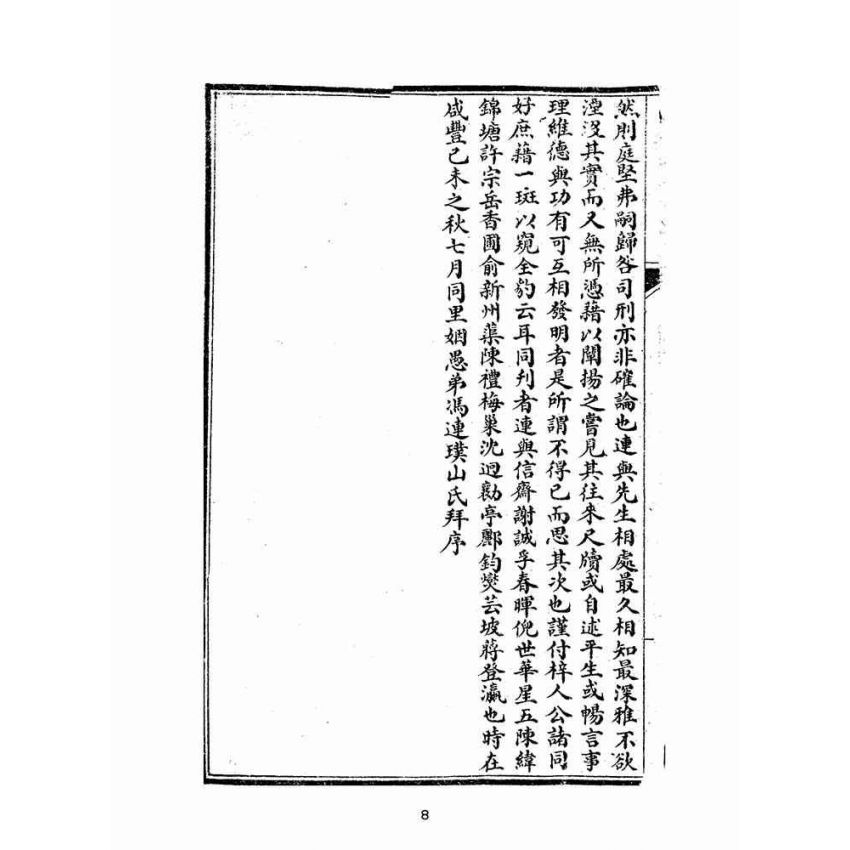 然則庭堅弗嗣歸咎司刑亦非確論也連與先生相處最久相知最深雅不欲
湮沒其實而又無所憑藉以闡揚之嘗見其往來尺牘或自述平生或暢言事
理維德與功有可互相發明者是所謂不得已而思其次也謹付梓人公諸同
好庶藉一斑以窺全豹云耳同刊者連與信齋謝誠孚春暉倪世華星五陳緯
錦塘許宗岳香圃俞新州蕖陳禮梅巢沈迥勷亭酈鈞爕芸坡蔣登瀛也時在
咸豐己未之秋七月同里姻愚弟馮連璞山氏拜序
8